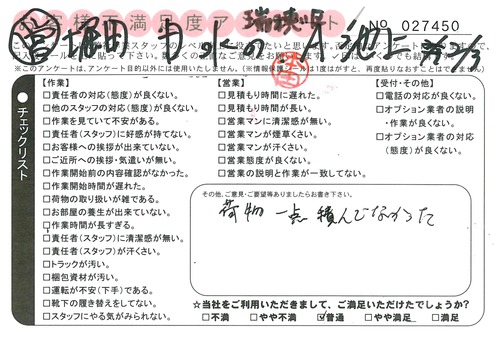 お客様満足度ア
瑞穂
No 027450
営 堀田
※このアンケートは、アンケート目的以外には使用いたしません。
【作業】
□責任者の対応(態度)が良くない。
□他のスタッフの対応(態度)が良くない。
□作業を見ていて不安がある。
□責任者(スタッフ)に好感が持てない。
□お客様への挨拶が出来ていない。
□ご近所への挨拶・気遣いが無い。
□作業開始前の内容確認がなかった。
□作業開始時間が遅れた。
□荷物の取り扱いが雑である。
□お部屋の養生が出来ていない。
□作業時間が長すぎる。
□責任者(スタッフ)に清潔感が無い。
□責任者(スタッフ)が汗くさい。
□トラックが汚い。
□梱包資材が汚い。
□運転が不安(下手)である。
□靴下の履き替えをしてない。
□スタッフにやる気がみられない。
【営業】
□見積もり時間に遅れた。
□見積もり時間が長い。
□営業マンに清潔感が無い。
□営業マンが煙草くさい。
□営業マンが汗くさい。
□営業態度が良くない。
□営業の説明と作業が一致してない。
【受付・その他】
□電話の対応が良くない。
□オプション業者の説明・作業が良くない。
□オプション業者の対応(態度)が良くない。
●チェックリスト
その他、ご意見・ご要望等ありましたらお書き下さい。
荷物 一点 積んでなかった
☆当社をご利用いただきまして、ご満足いただけたでしょうか?
□不満 □やや不満 ☑普通 □やや満足 □満足